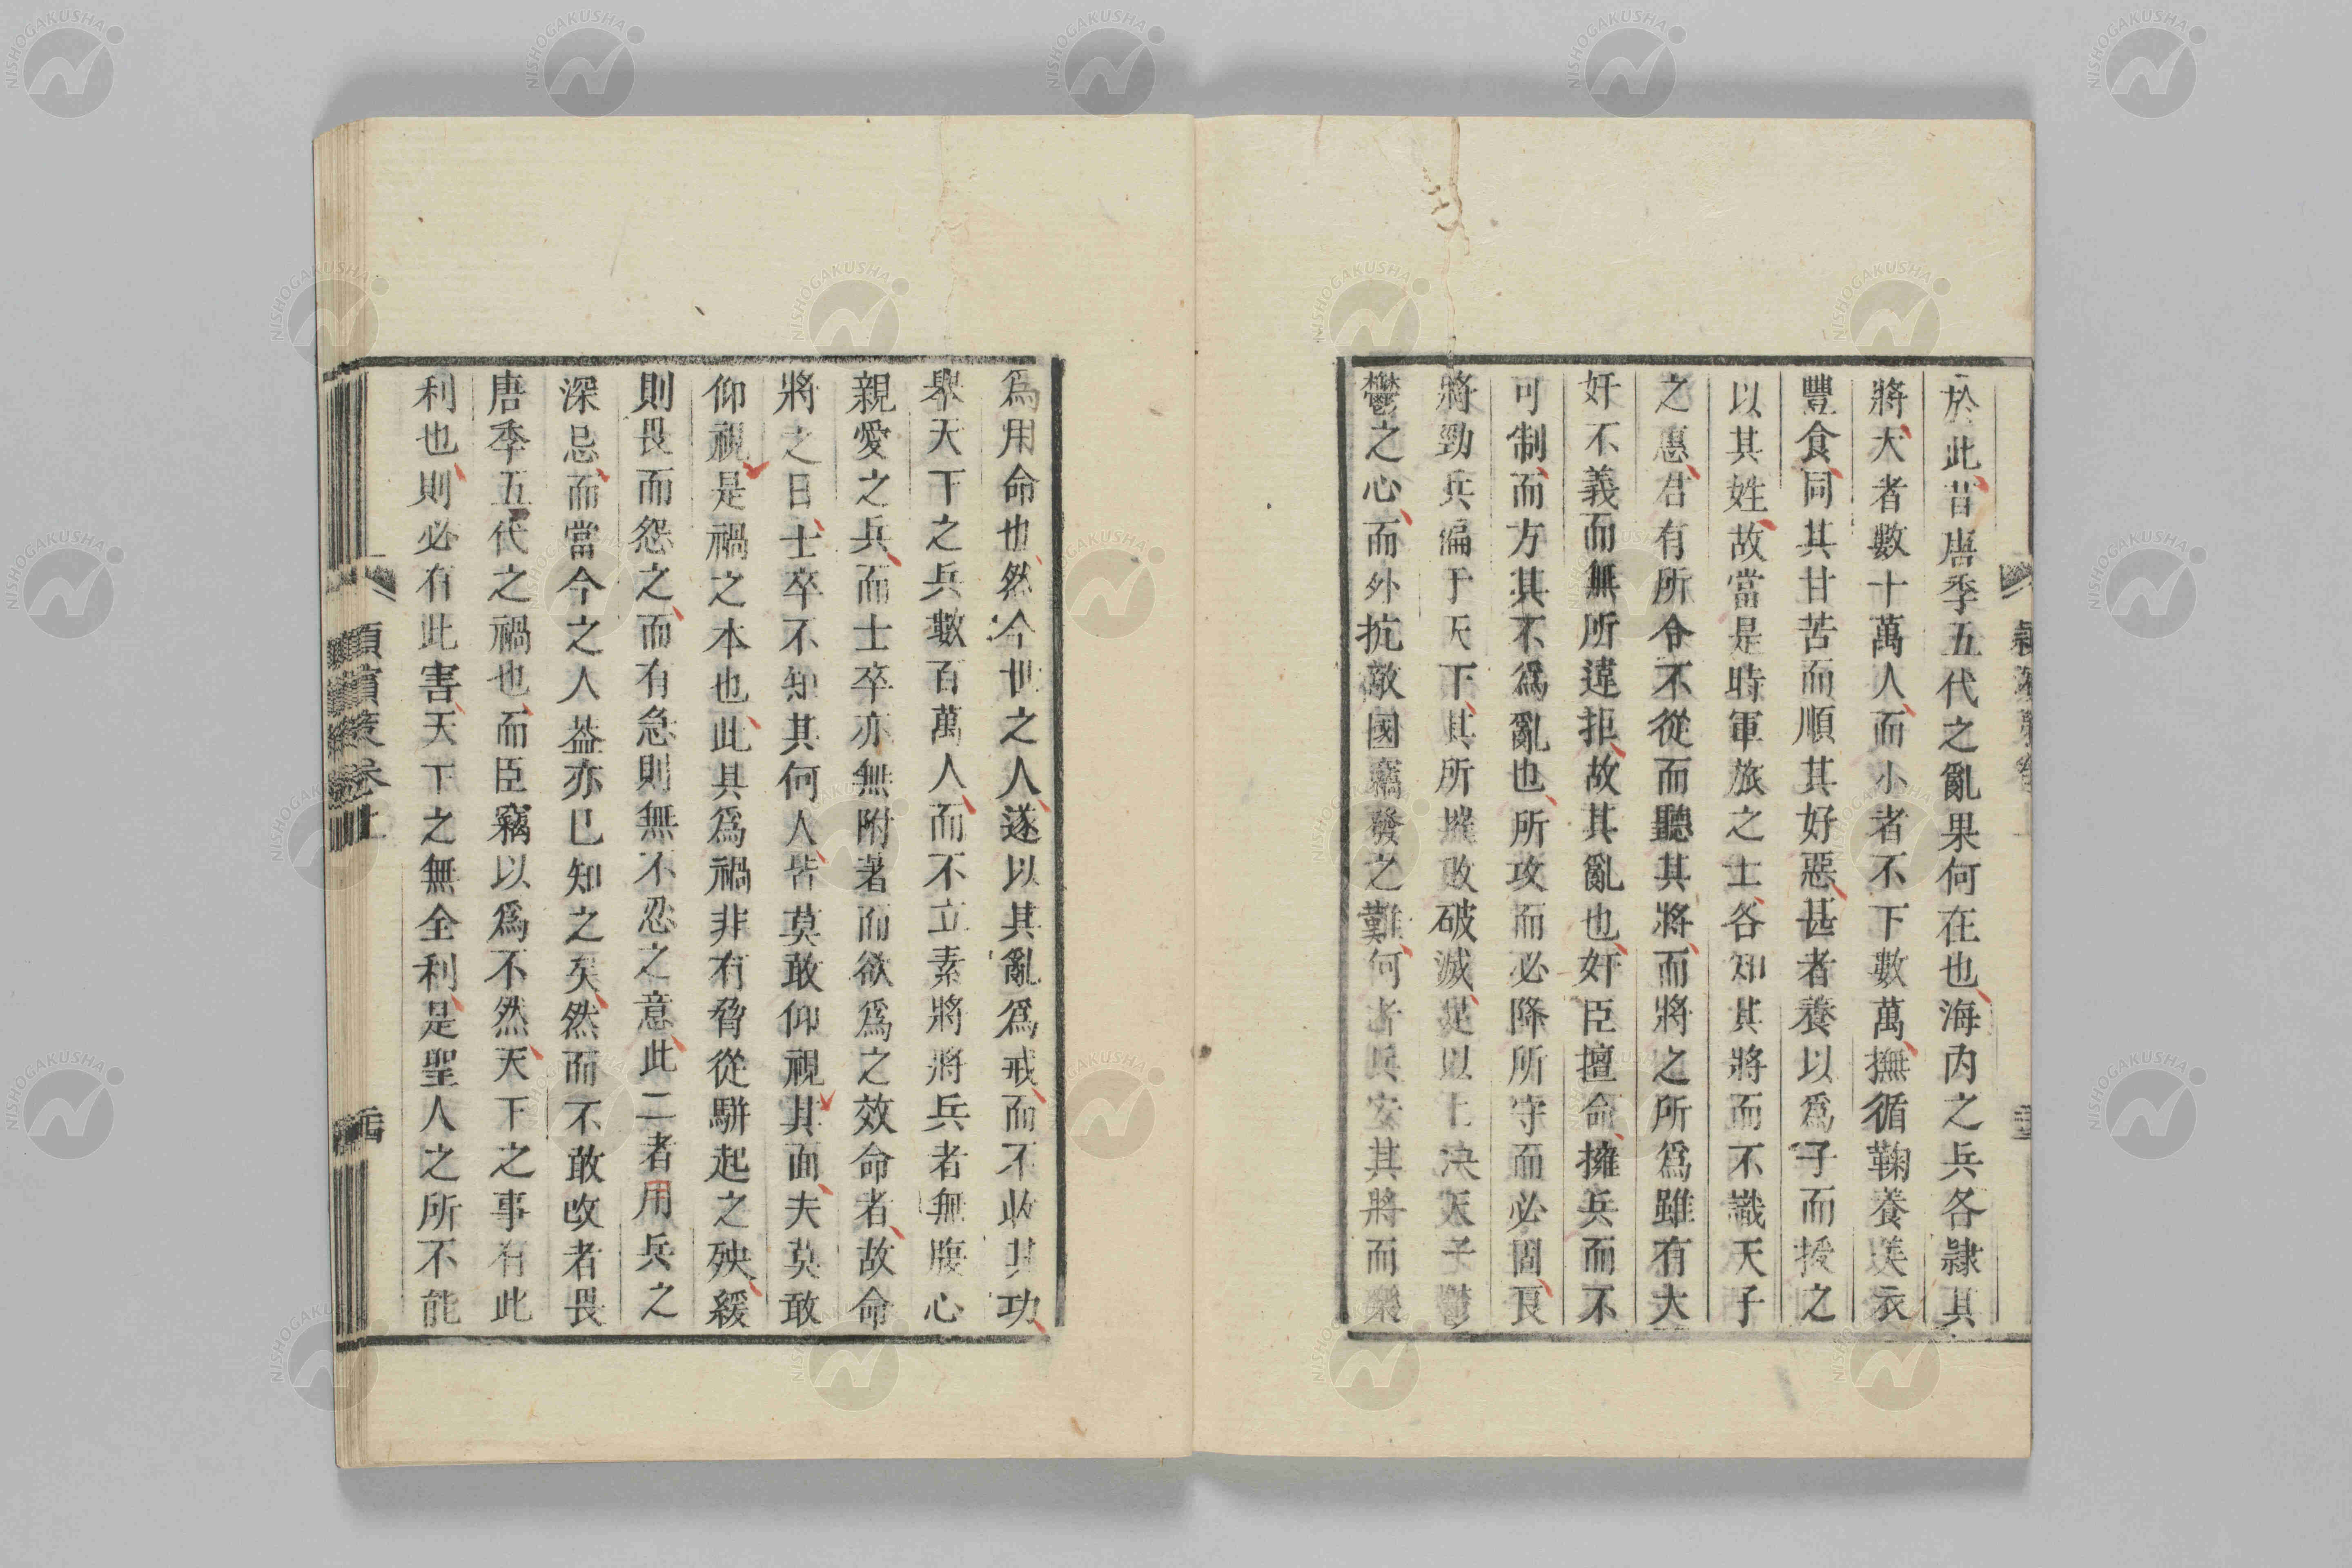 於此昔唐季五代之亂果何在也海內之兵各隷其
將大者數十萬人而小者不下數萬撫循鞠養美衣
豐食同其甘苦而順其好惡甚者養以爲子而授之
以其姓故當是時軍旅之士各知其將而不識天子
之惠君有所令不從而聽其將而將之所爲雖有大
奸不義而無所違拒故其亂也奸臣擅命擁兵而不
可制而方其不爲亂也所攻而必降所守而必固良
將勁兵徧于天下其所摧敗破滅足以上決天子鬱
鬱之心而外抗敵國竊發之難何者兵安其將而樂
爲用命也然今世之人遂以其亂爲戒而不收其功
舉天下之兵數百萬人而不立素將將兵者無腹心
親愛之兵而士卒亦無附著而欲爲之效命者故命
將之日士卒不知其何人皆莫敢仰視其面夫莫敢
仰視是禍之本也此其爲禍非有脅從駢起之殃緩
則畏而怨之而有急則無不忍之意此二者用兵之
深忌而當今之人葢亦已知之矣然而不敢改者畏
唐季五代之禍也而臣竊以爲不然天下之事有此
利也則必有此害天下之無全利是聖人之所不能
潁濱策卷上
NISHOGAKUSHA